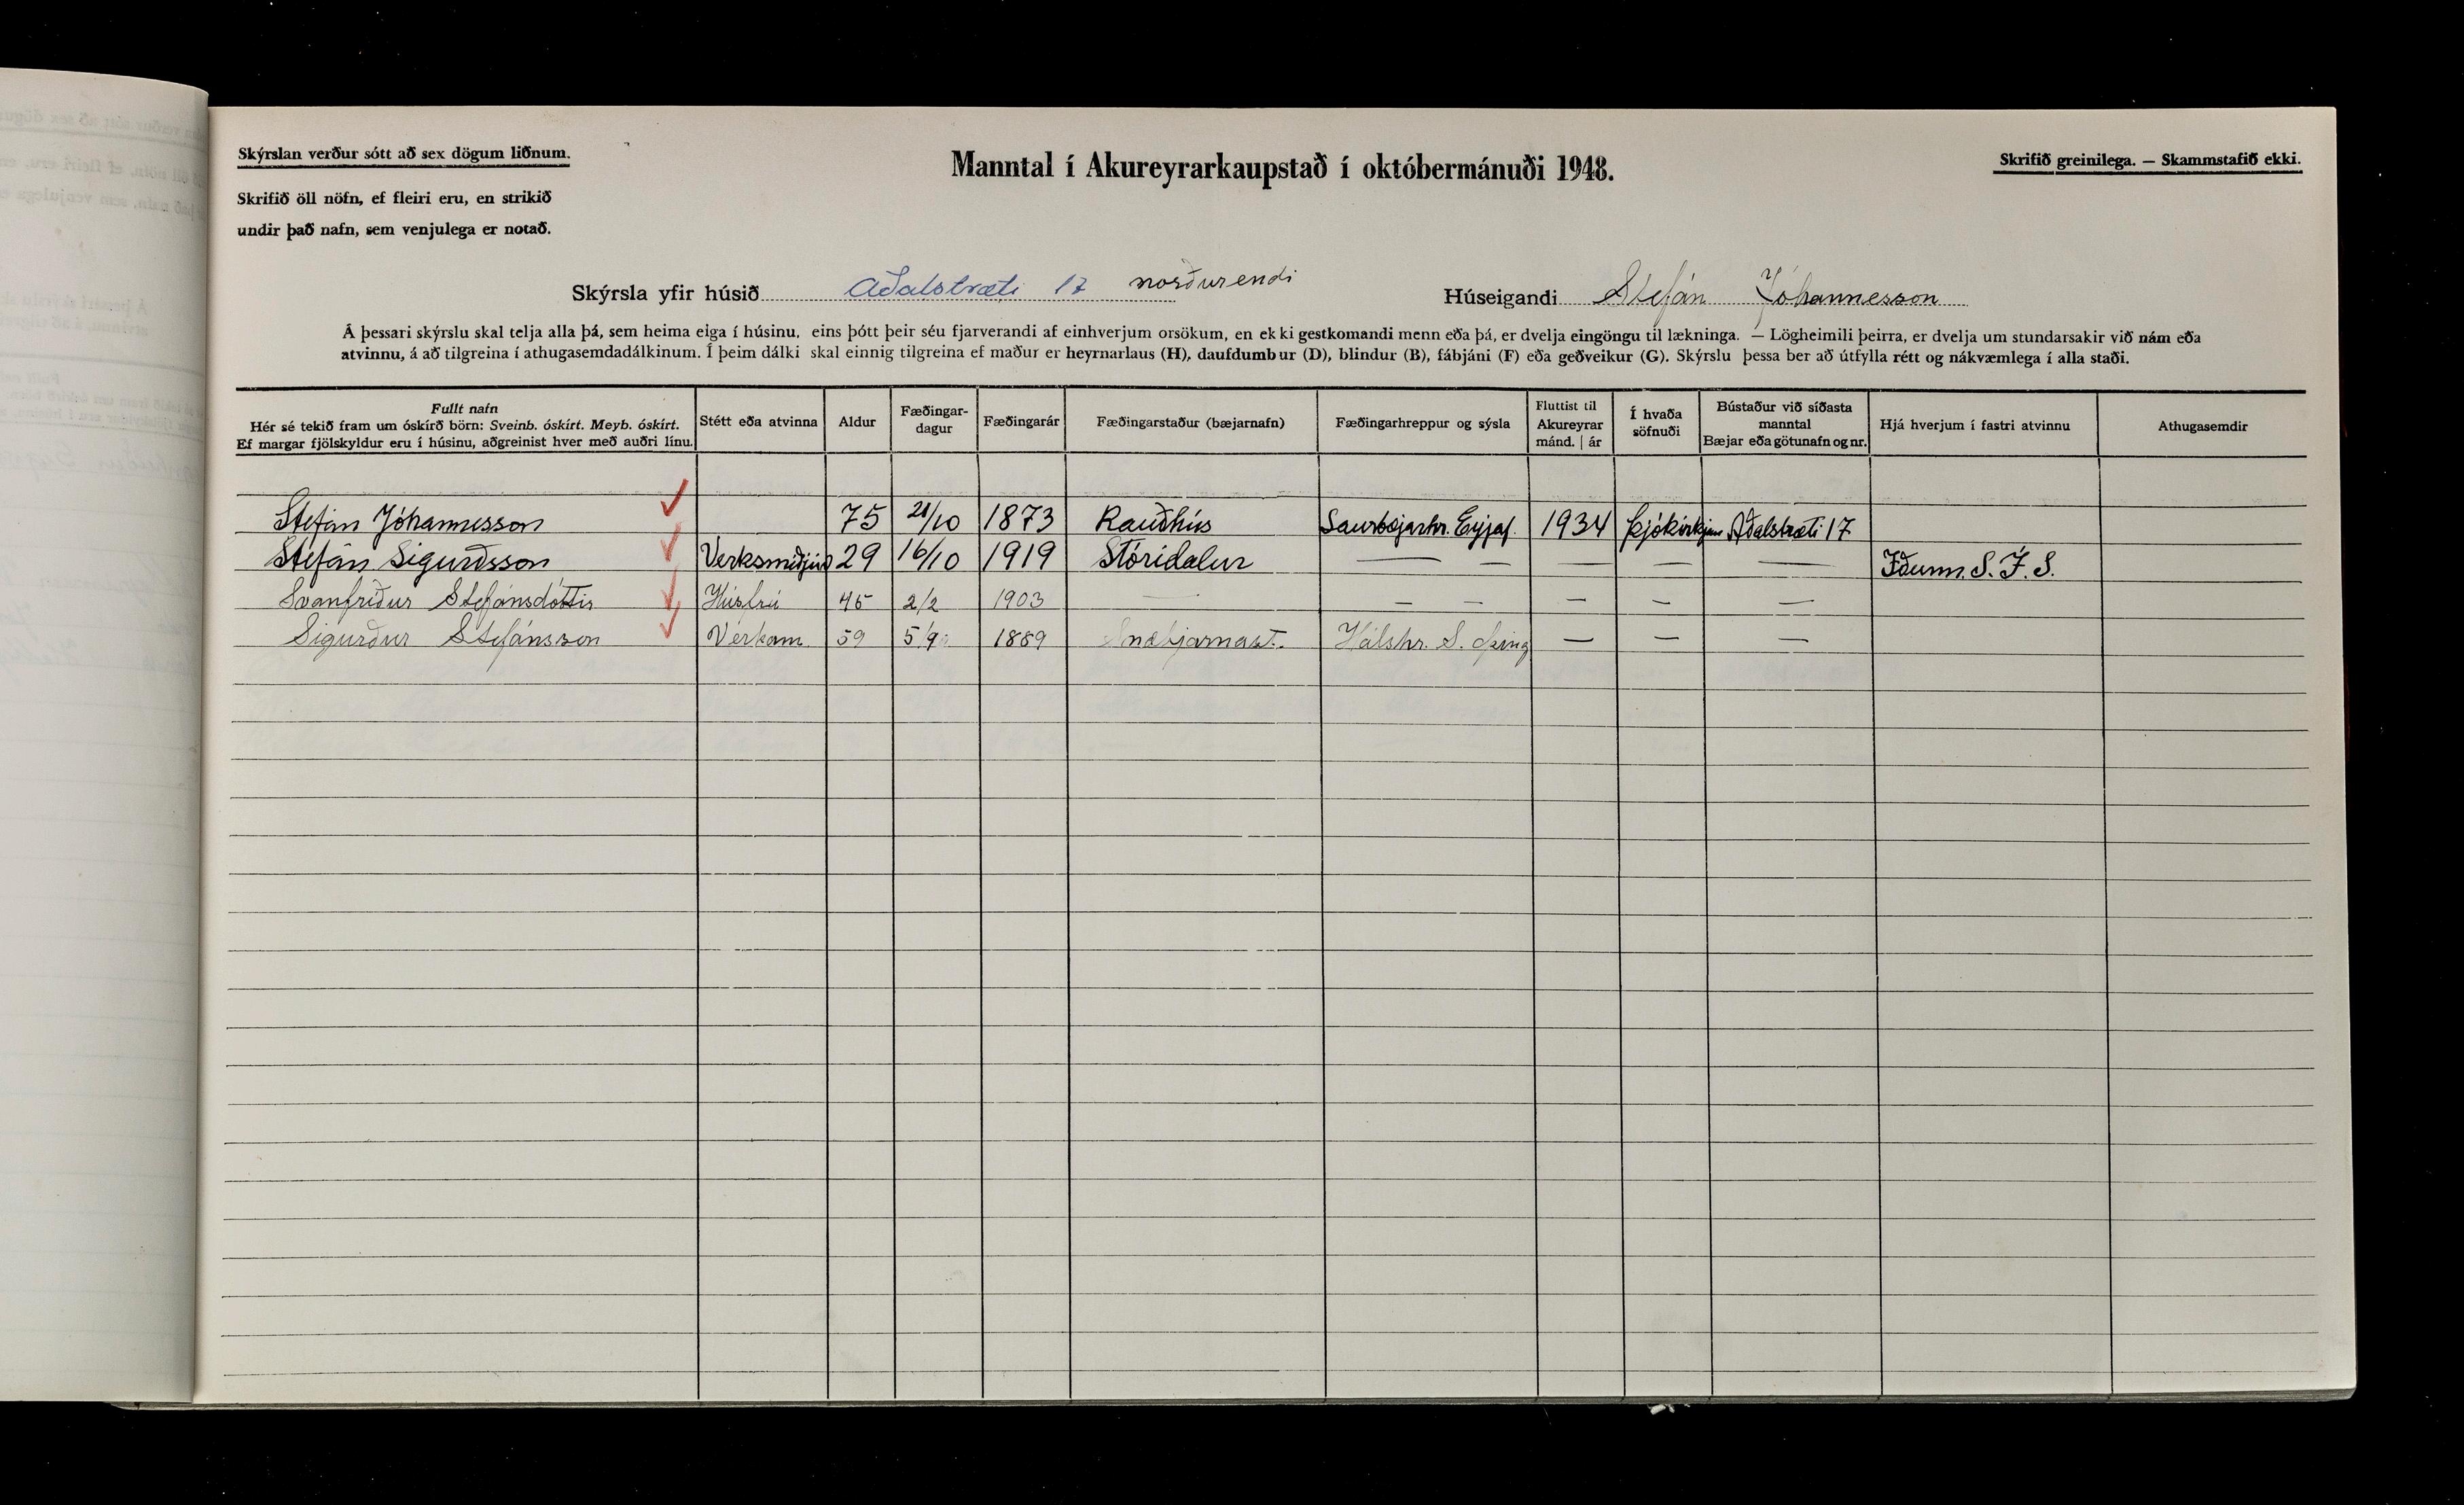 Skýrslan verður sótt að sex dögum liðnum.
Manntal í Akureyrarkaupstað í októbermánuði 1948.
Skrifið greinilega. — Skammstafið ekki.
Skrifið öll nöfn, ef fleiri eru, en strikið
undir það nafn, sem venjulega er notað.
Skýrsla yfir húsið Aðalstræti 17 norðurendi Húseigandi Stefán Jóhannesson
Á þessari skýrslu skal telja alla þá, sem heima eiga í húsinu, eins þótt þeir séu fjarverandi af einhverjum orsökum, en ekki gestkomandi menn eða þá, er dvelja eingöngu til lækninga. — Lögheimili þeirra, er dvelja um stundarsakir við nám eða
atvinnu, á að tilgreina í athugasemdadálkinum. Í þeim dálki skal einnig tilgreina ef maður er heyrnarlaus (H), daufdumbur (D), blindur (B), fábjáni (F) eða geðveikur (G). Skýrslu þessa ber að útfylla rétt og nákvæmlega í alla staði.
Fullt nafn
Hér sé tekið fram um óskírð börn: Sveinb. óskírt. Meyb. óskírt.
Ef margar fjölskyldur eru í húsinu, aðgreinist hver með auðri línu.
Stétt eða atvinna
Aldur
Fæðingar-
dagur
Fæðingarár
Fæðingarstaður (bæjarnafn)
Fæðingarhreppur og sýsla
Fluttist til
Akureyrar
mánd. | ár
Í hvaða
söfnuði
Bústaður við síðasta
manntal
Bæjar eða götunafn og nr.
Hjá hverjum í fastri atvinnu
Athugasemdir
Stefán Jóhannesson 75 21/10 1873 Rauðhús Saurbæjarhr. Eyjaf. 1934 Þjókirkjan Aðalstræti 17
Stefán Sigurðsson 29 16/10 1919 Stóridalur — — — — — Iðunn. S.Í.S.
Svanfríður Stefánsdóttir Húsfrú 45 2/2 1903 — — — — — —
Sigurður Stefánsson Verkam. 59 5/9 1889 Snæbjarnast. Hálshr. S. Þing — — —